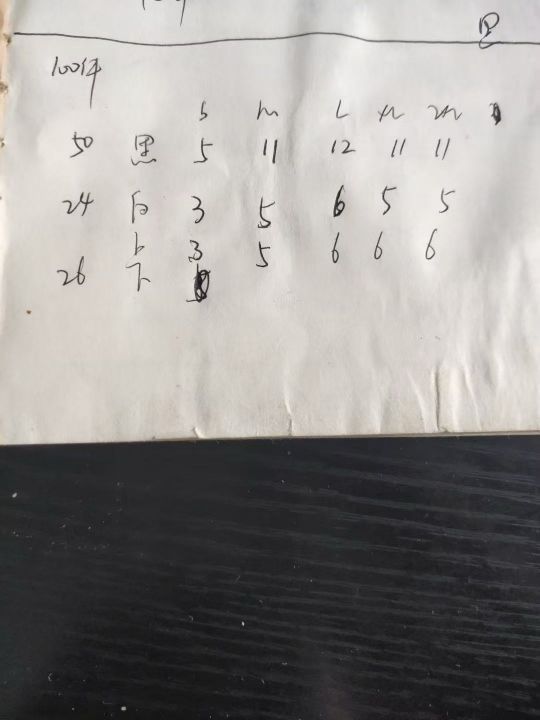 100件
S M L XL 2XL
50 黑 5 11 12 11 11
24 白 3 5 6 5 5
26 卡 3 5 6 6 6